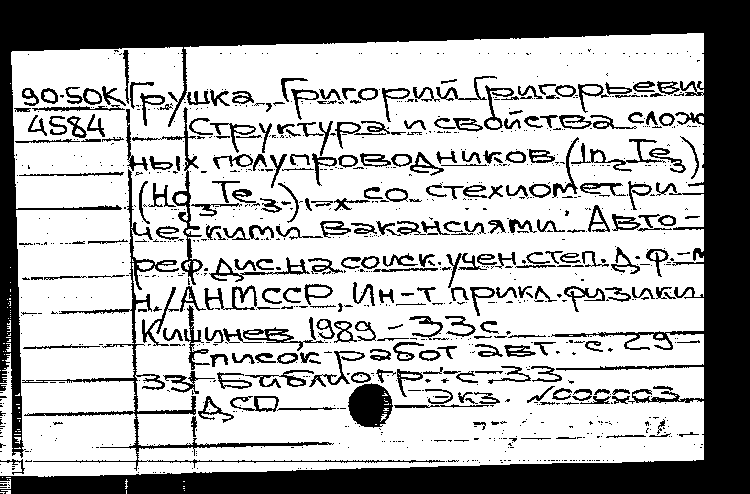 90-50К Грушка, Григорий Григорьевич
4584 Структура и свойства слож
ных полупроводников (In2Te3)x
(Hg3Te3)1-x со стехиометри-
ческими вакансиями: Авто-
реф.дис.на соиск.учен.степ.д.ф.-м
н./АНМССР, Ин-т прикл.физики.
Кишинев, 1989 - 33с.
Список работ авт.: с. 29-
33 Библиогр.: с.33.
ДСП Экз. №000003